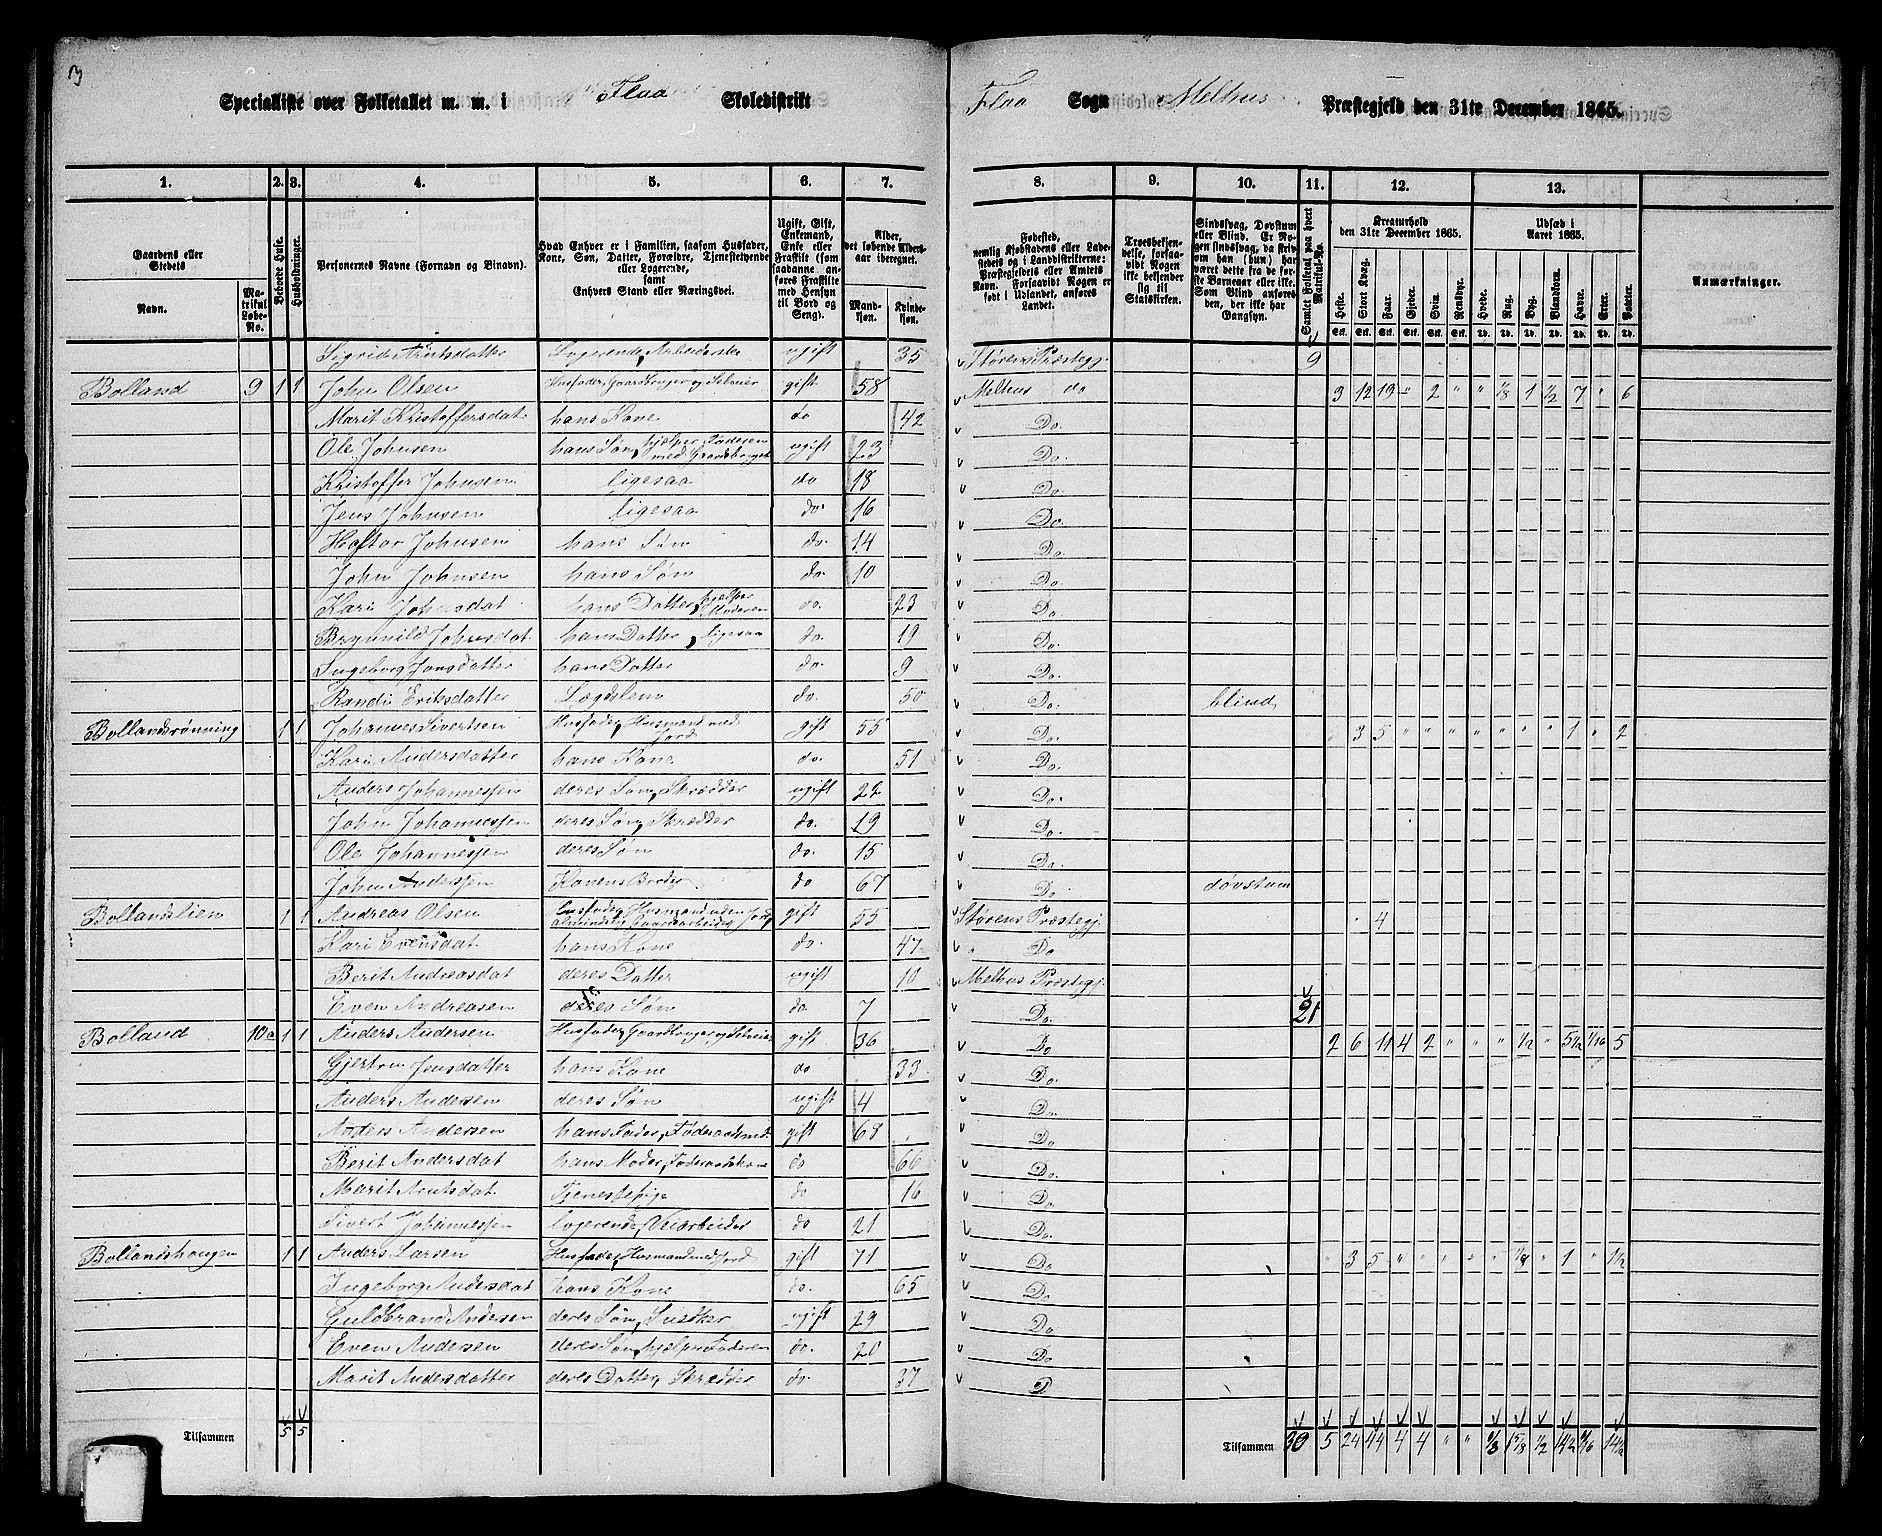 3
Specialliste over Folketallet m. m. i Flaa Skoledistrikt Flaa Sogn Melhus Præstegjeld den 31te December 1865.
1. 2. 3. 4. 5. 6. 7. 8. 9. 10. 11. 12. 13.
Gaardens eller Stedets Navn. Matrikul Løbe-No. Beboede Huse. Husholdninger. Personernes Navne (Fornavn og Binavn). Hvad Enhver er i Familien, saasom Husfader, Kone, Søn, Datter, Forældre, Tjenestetyende eller Logerende, samt Enhvers Stand eller Næringsvei. Ugift, Gift, Enkemand, Enke eller Fraskilt (som saadanne anføres Fraskilte med Hensyn til Bord og Seng). Alder, det løbende Aldersaar iberegnet. Mandkjøn. Kvindekjøn. Fødested, nemlig Kjøbstadens eller Ladestedets og i Landdistrikterne: Præstegjeldets eller Amtets Navn. Forsaavidt Nogen er født i Udlandet, anføres Landet. Troesbekjendelse, forsaavidt Nogen ikke bekjender sig til Statskirken. Sindssvag, Døvstum eller Blind. Er Nogen sindssvag, da skrives om han (hun) har været dette fra de første Barneaar eller ikke. Som Blind anføres den, der ikke har Gangsyn. Samlet Folketal paa hvert Matrikul-No. Kreaturhold den 31te December 1865. Heste. Stort Kvæg. Faar. Gjeder. Sviin. Rensdyr. Udsæd i Aaret 1865. Hvede. Rug. Byg. Blandkorn. Havre. Erter. Poteter. Anmærkninger.
Sigrid Arntsdatter Logerende, Arbeiderske ugift 35 Størens Præstegj. 9
Bolland 9 1 1 John Olsen Husfader, Gaardbruger og Selveier gift 58 Melhus do 3 12 19 " 2 " " 1/8 1 1/2 7 " 6
Marit Kristoffersdat hans Kone do 42 Do.
Ole Johnsen hans Søn, hjælper Faderen med Gaardsbruget ugift 23 Do.
Kristoffer Johnsen ligesaa do 18 Do.
Jens Johnsen ligesaa do. 16 Do.
Haftor Johnsen hans Søn do. 14 Do.
John Johnsen hans Søn do. 10 Do.
Kari Johnsdat hans Datter, hjelper Moderen do. 23 Do.
Brynnild Johnsdat. hans Datter, ligesaa do. 19 Do.
Ingeborg Jonsdatter hans Datter do. 9 Do.
Randi Eriksdatter Lægdslem do. 50 Do. blind
Bollandsrønning 1 1 Johannes Sivertsen Husfader, Husmand med Jord gift 55 Do. " 3 5 " " " " " " " 1 " 2
Kari Andersdatter hans Kone do. 51 Do.
Anders Johannessen deres Søn, Skrædder ugift 22 Do.
John Johannessen deres Søn, Skrædder do. 19 Do.
Ole Johannessen deres Søn do. 15 Do.
John Andersen Konens Broder do 67 Do. døvstum
Bollandslien 1 1 Andreas Olsen Husfader, Husmand uden Jord, almindelig Gaardsarbeide gift 55 Størens Præstegj. 4
Kari Evensdat. hans Kone do. 47 Do
Berit Andreasdat deres Datter ugift 10 Melhus Præstegj.
Even Andreasen deres Søn do. 7 Do. 21
Bolland 10a 1 1 Anders Andersen Husfader, Gaardbruger og Selveier gift 36 Do 2 6 11 4 2 " " " 1/2 " 5 1/2 1/16 5
Gjertru Jensdatter hans Kone do 33 Do.
Anders Andersen deres Søn ugift 4 Do.
Anders Andersen hans Fader, Føderaadsmd. gift 68 Do.
Berit Andersdat hans Moder, Føderaadskone do 66 Do.
Marit Arntsdat. Tjenestepige do 16 Do.
Sivert Johannessen logerende, Veiarbeider do 21 Do.
Bollandshaugen 1 1 Anders Larsen Husfader, Husmand med Jord gift 71 Do " 3 5 " " " " " 1/4 " 1 " 1 1/2
Ingeborg Andersdat hans Kone do. 65 Do
Guldbrand Andersen deres Søn, Snedker ugift 29 Do
Even Andersen deres Søn, hjælper Faderen do. 20 Do
Marit Andersdatter deres Datter, Skrædder do. 37 D
Tilsammen 5 5 Tilsammen 30 5 24 44 4 4 " " 1/8 1 5/8 1/2 14 1/2 1/16 14 1/2